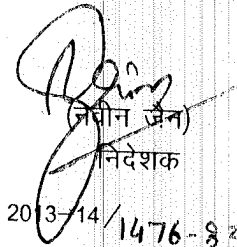 (नवीन जैन)
निदेशक
2013-14/1476-82